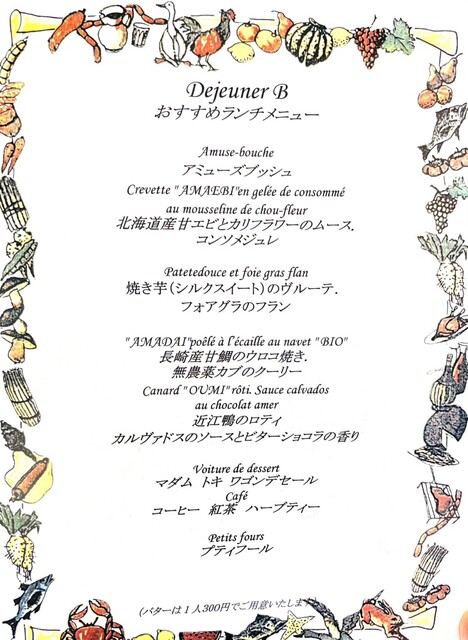 Dejeuner B
おすすめランチメニュー
Amuse-bouche
アミューズブッシュ
Crevette "AMAEBI"en gelée de consommé
au mousseline de chou-fleur
北海道産甘エビとカリフラワーのムース.
コンソメジュレ
Patetedouce et foie gras flan
焼き芋（シルクスイート）のヴルーテ.
フォアグラのフラン
"AMADAI"poêlé à l'écaille au navet "BIO"
長崎産甘鯛のウロコ焼き.
無農薬カブのクーリー
Canard "OUMI" rôti. Sauce calvados
au chocolat amer
近江鴨のロティ
カルヴァドスのソースとビターショコラの香り
Voiture de dessert
マダム トキ ワゴンデセール
Café
コーヒー 紅茶 ハーブティー
Petits fours
プティフール
(バターは１人300円でご用意いたします)